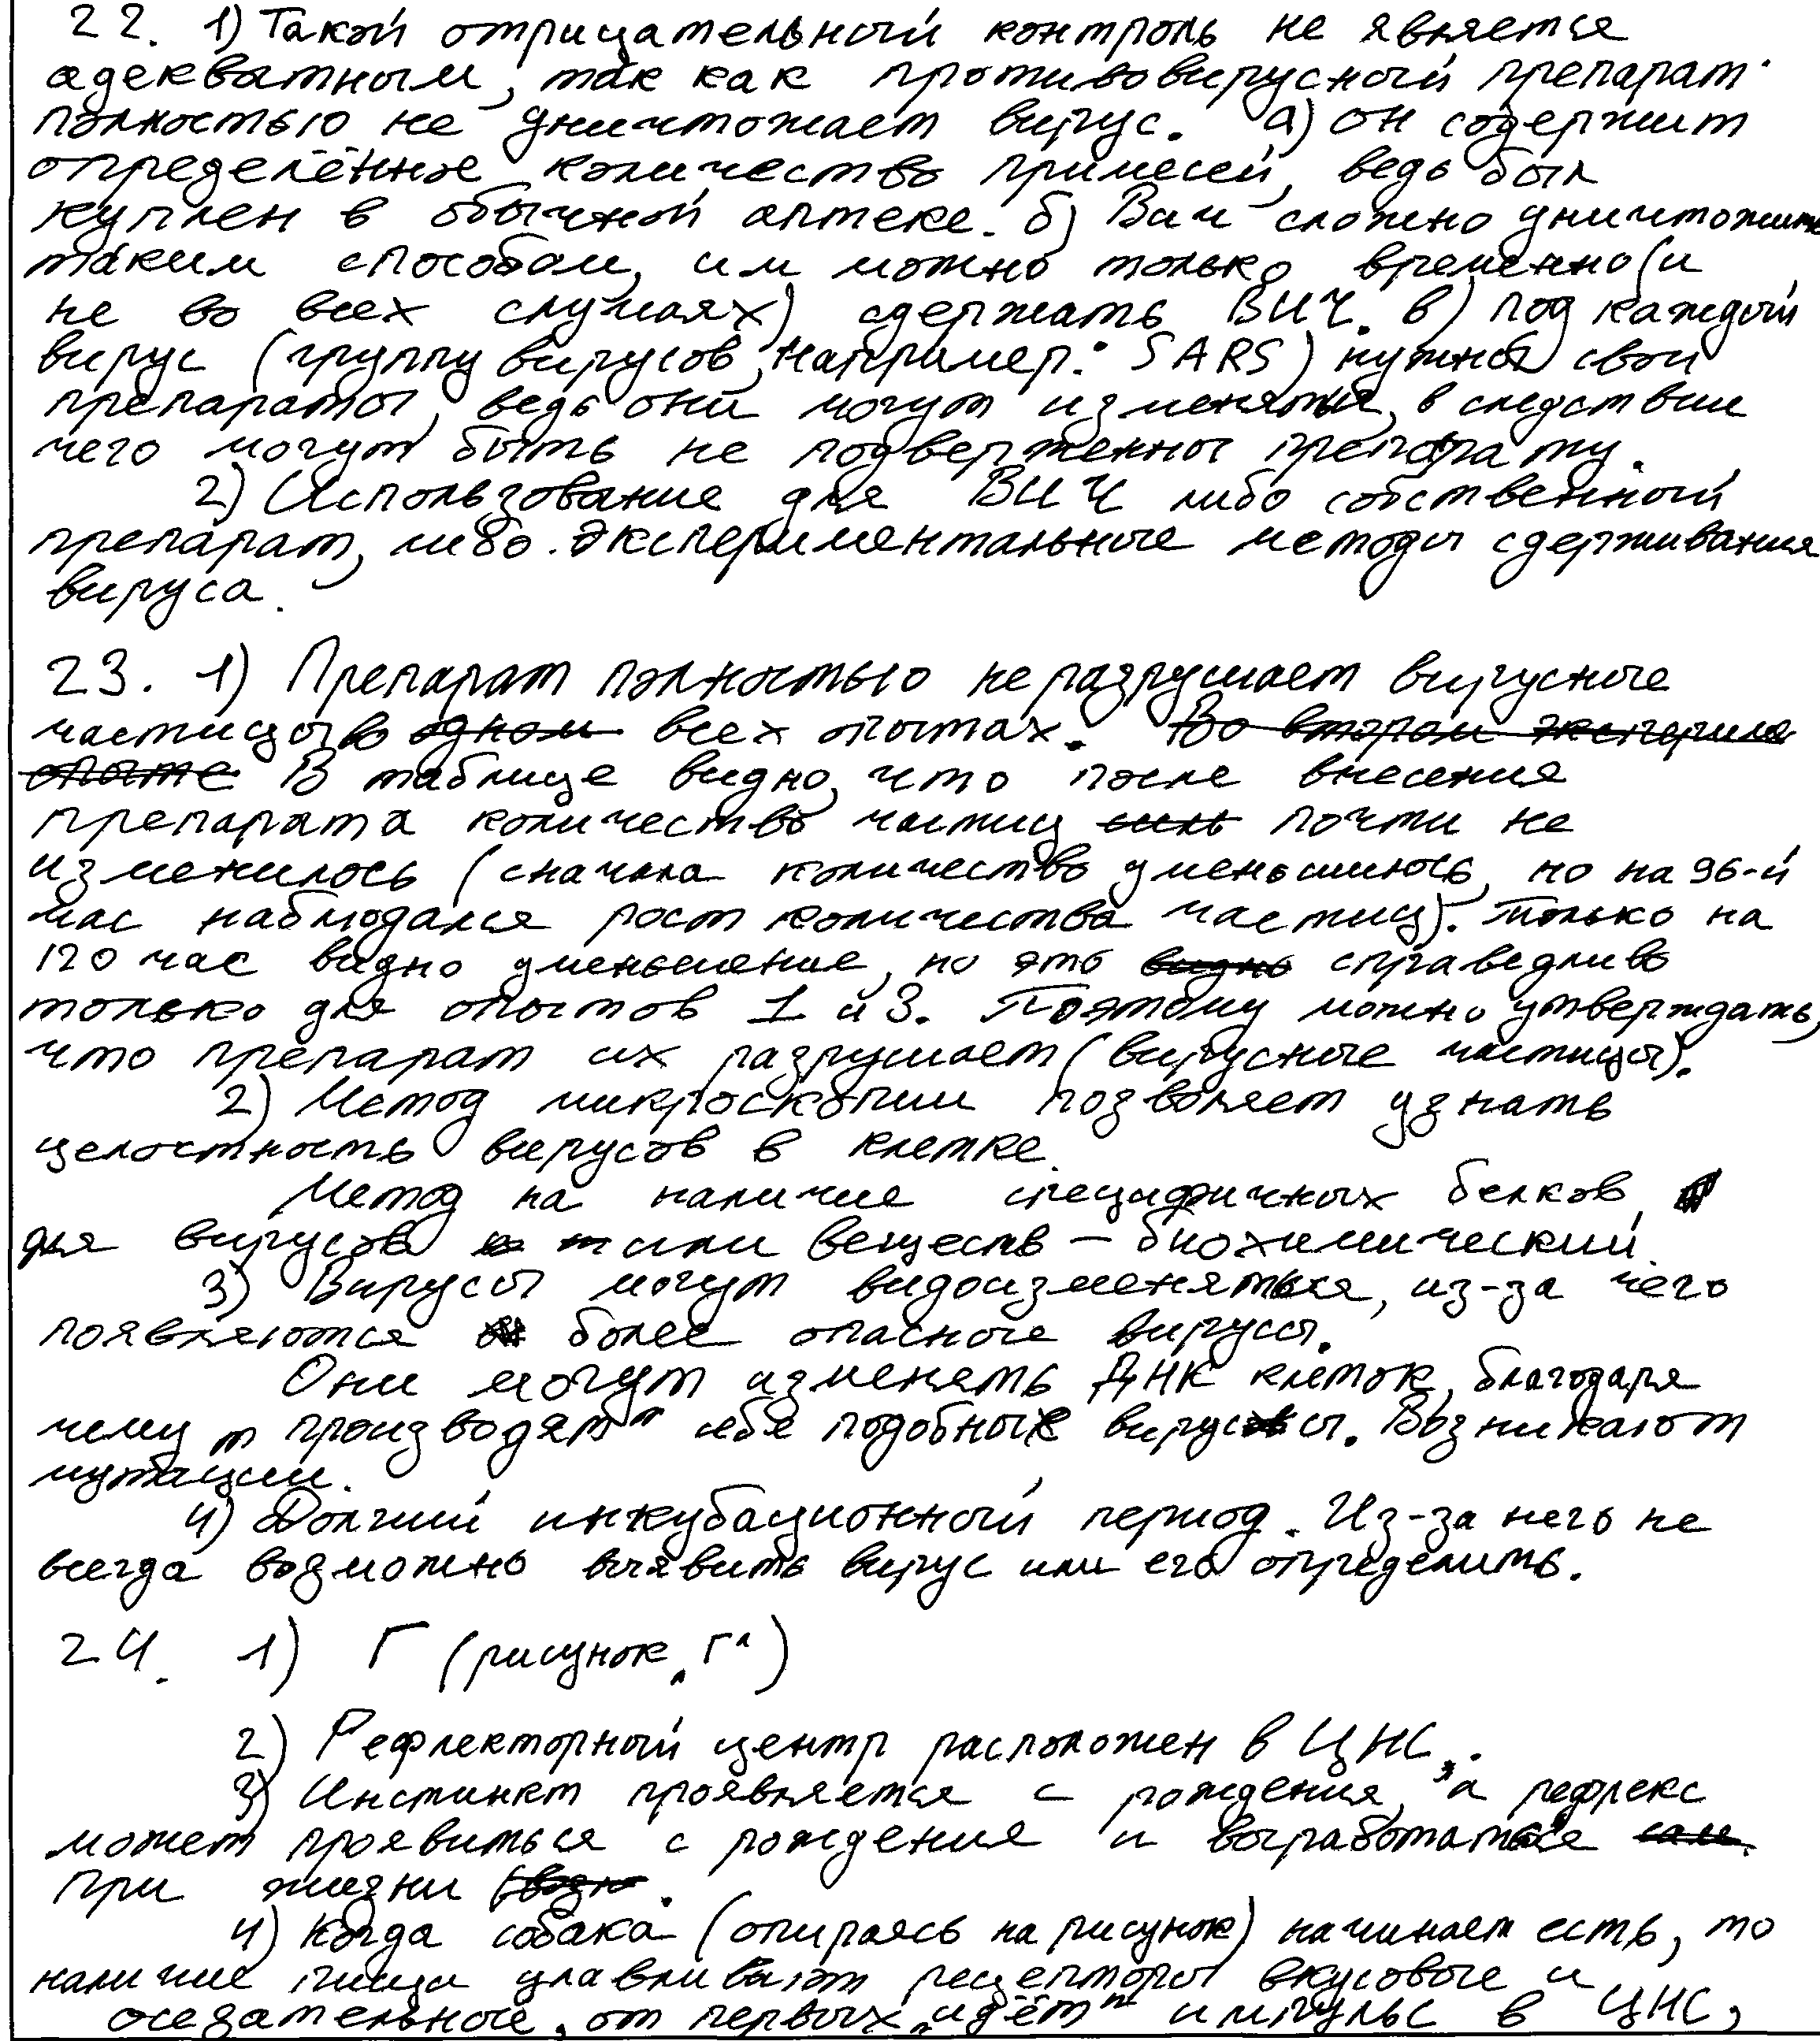 22. 1) Такой отрицательный контроль не является
адекватным, так как противовирусный препарат
полностью не уничтожает вирус. а) он содержит
определённое количество примесей, ведь был
куплен в обычной аптеке. б) Вич сложно уничтожить
таким способом, им можно только временно (и
не во всех случаях) сдержать ВИЧ. в) под каждый
вирус (группу вирусов, например: SARS) нужны свои
препараты, ведь они могут изменяться, в следствии
чего могут быть не подвержены препарату.
2) Использование для ВИЧ либо собственный
препарат, либо экспериментальные методы сдерживания
вируса.
23. 1) Препарат полностью не разрушает вирусные
частицы во одном всех опытах. Во втором эксперим
опыте В таблице видно, что после внесения
препарата количество частиц почти не
изменилось (сначала количество уменьшилось, но на 96-й
час наблюдался рост количества частиц). Только на
120 час видно уменьшение, но это видно справедливо
только для опытов 1 и 3. Поэтому можно утверждать,
что препарат их разрушает (вирусные частицы).
2) Метод микроскопии позволяет узнать
целостность вирусов в клетке.
Метод на наличие специфичных белков,
для вирусов или веществ – биохимический.
3) Вирусы могут видоизменяться, из-за чего
появляются более опасные вирусы.
Они могут изменять ДНК клеток, благодаря
чему "производят" себе подобные вирусы. Возникают
мутации.
4) Долгий инкубационный период. Из-за него не
всегда возможно выявить вирус или его определить.
24. 1) Г (рисунок „Г“)
2) Рефлекторный центр расположен в ЦНС.
3) Инстинкт проявляется с рождения, а рефлекс
может проявиться с рождения и выработаться
при жизни.
4) Когда собака (опираясь на рисунок) начинает есть, то
наличие пищи улавливают рецепторы вкусовые и
осязательные, от первых „идёт“ импульс в ЦНС,